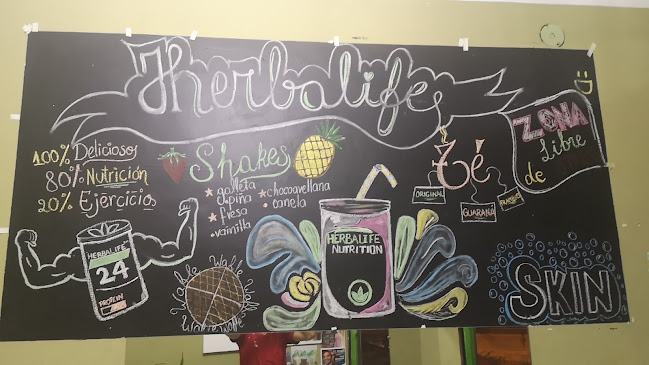 Herbalife
100% Delicioso
80% Nutrición
20% Ejercicio
Shakes
galleta
piña
fresa
vainilla
chocoavellana
canela
Té
ORIGINAL
GUARANÁ
ZONA
Libre
de
HERBALIFE
24
PROTEIN
HERBALIFE
NUTRITION
SKIN